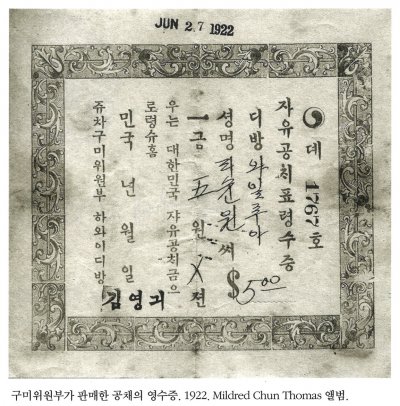 JUN 27 1922
데 1767 호
자유공치표령수증
디방 와일루아
셩명 씨
一금 五 원 X 젼
$5.00
우는 대한민국 자유공치금으
로령슈홈
민국 년 월 일
쥬차구미위원부 하와이디방
김영긔
구미위원부가 판매한 공채의 영수증. 1922. Mildred Chun Thomas 앨범.